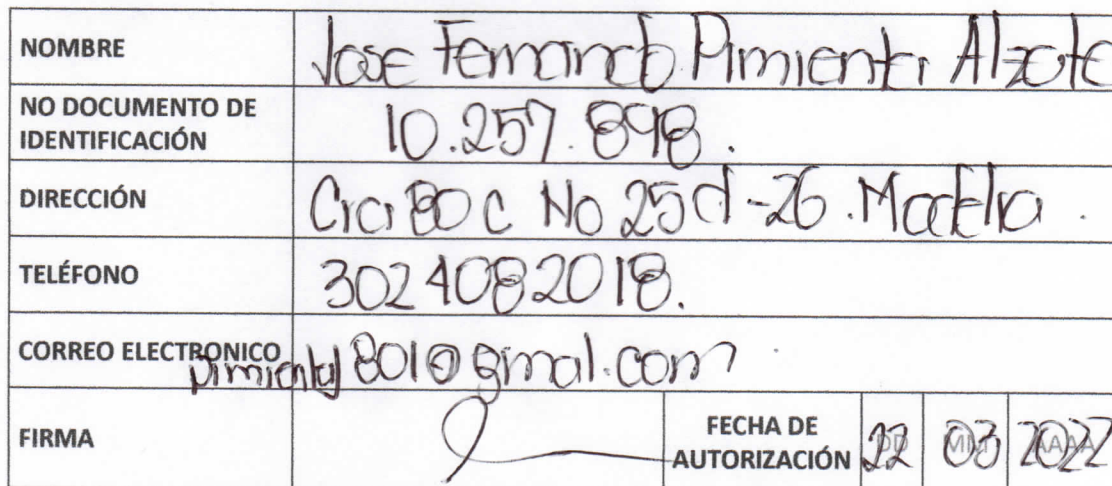 NOMBRE Jose Fernando Pimienta Alzate
NO DOCUMENTO DE
IDENTIFICACIÓN 10.257.898.
DIRECCIÓN Cra 80 C No 25 d - 26. Modelia.
TELÉFONO 3024082018.
CORREO ELECTRONICO pimientaj801@gmail.com
FIRMA FECHA DE
AUTORIZACIÓN DD 22 MM 03 AAAA 2022